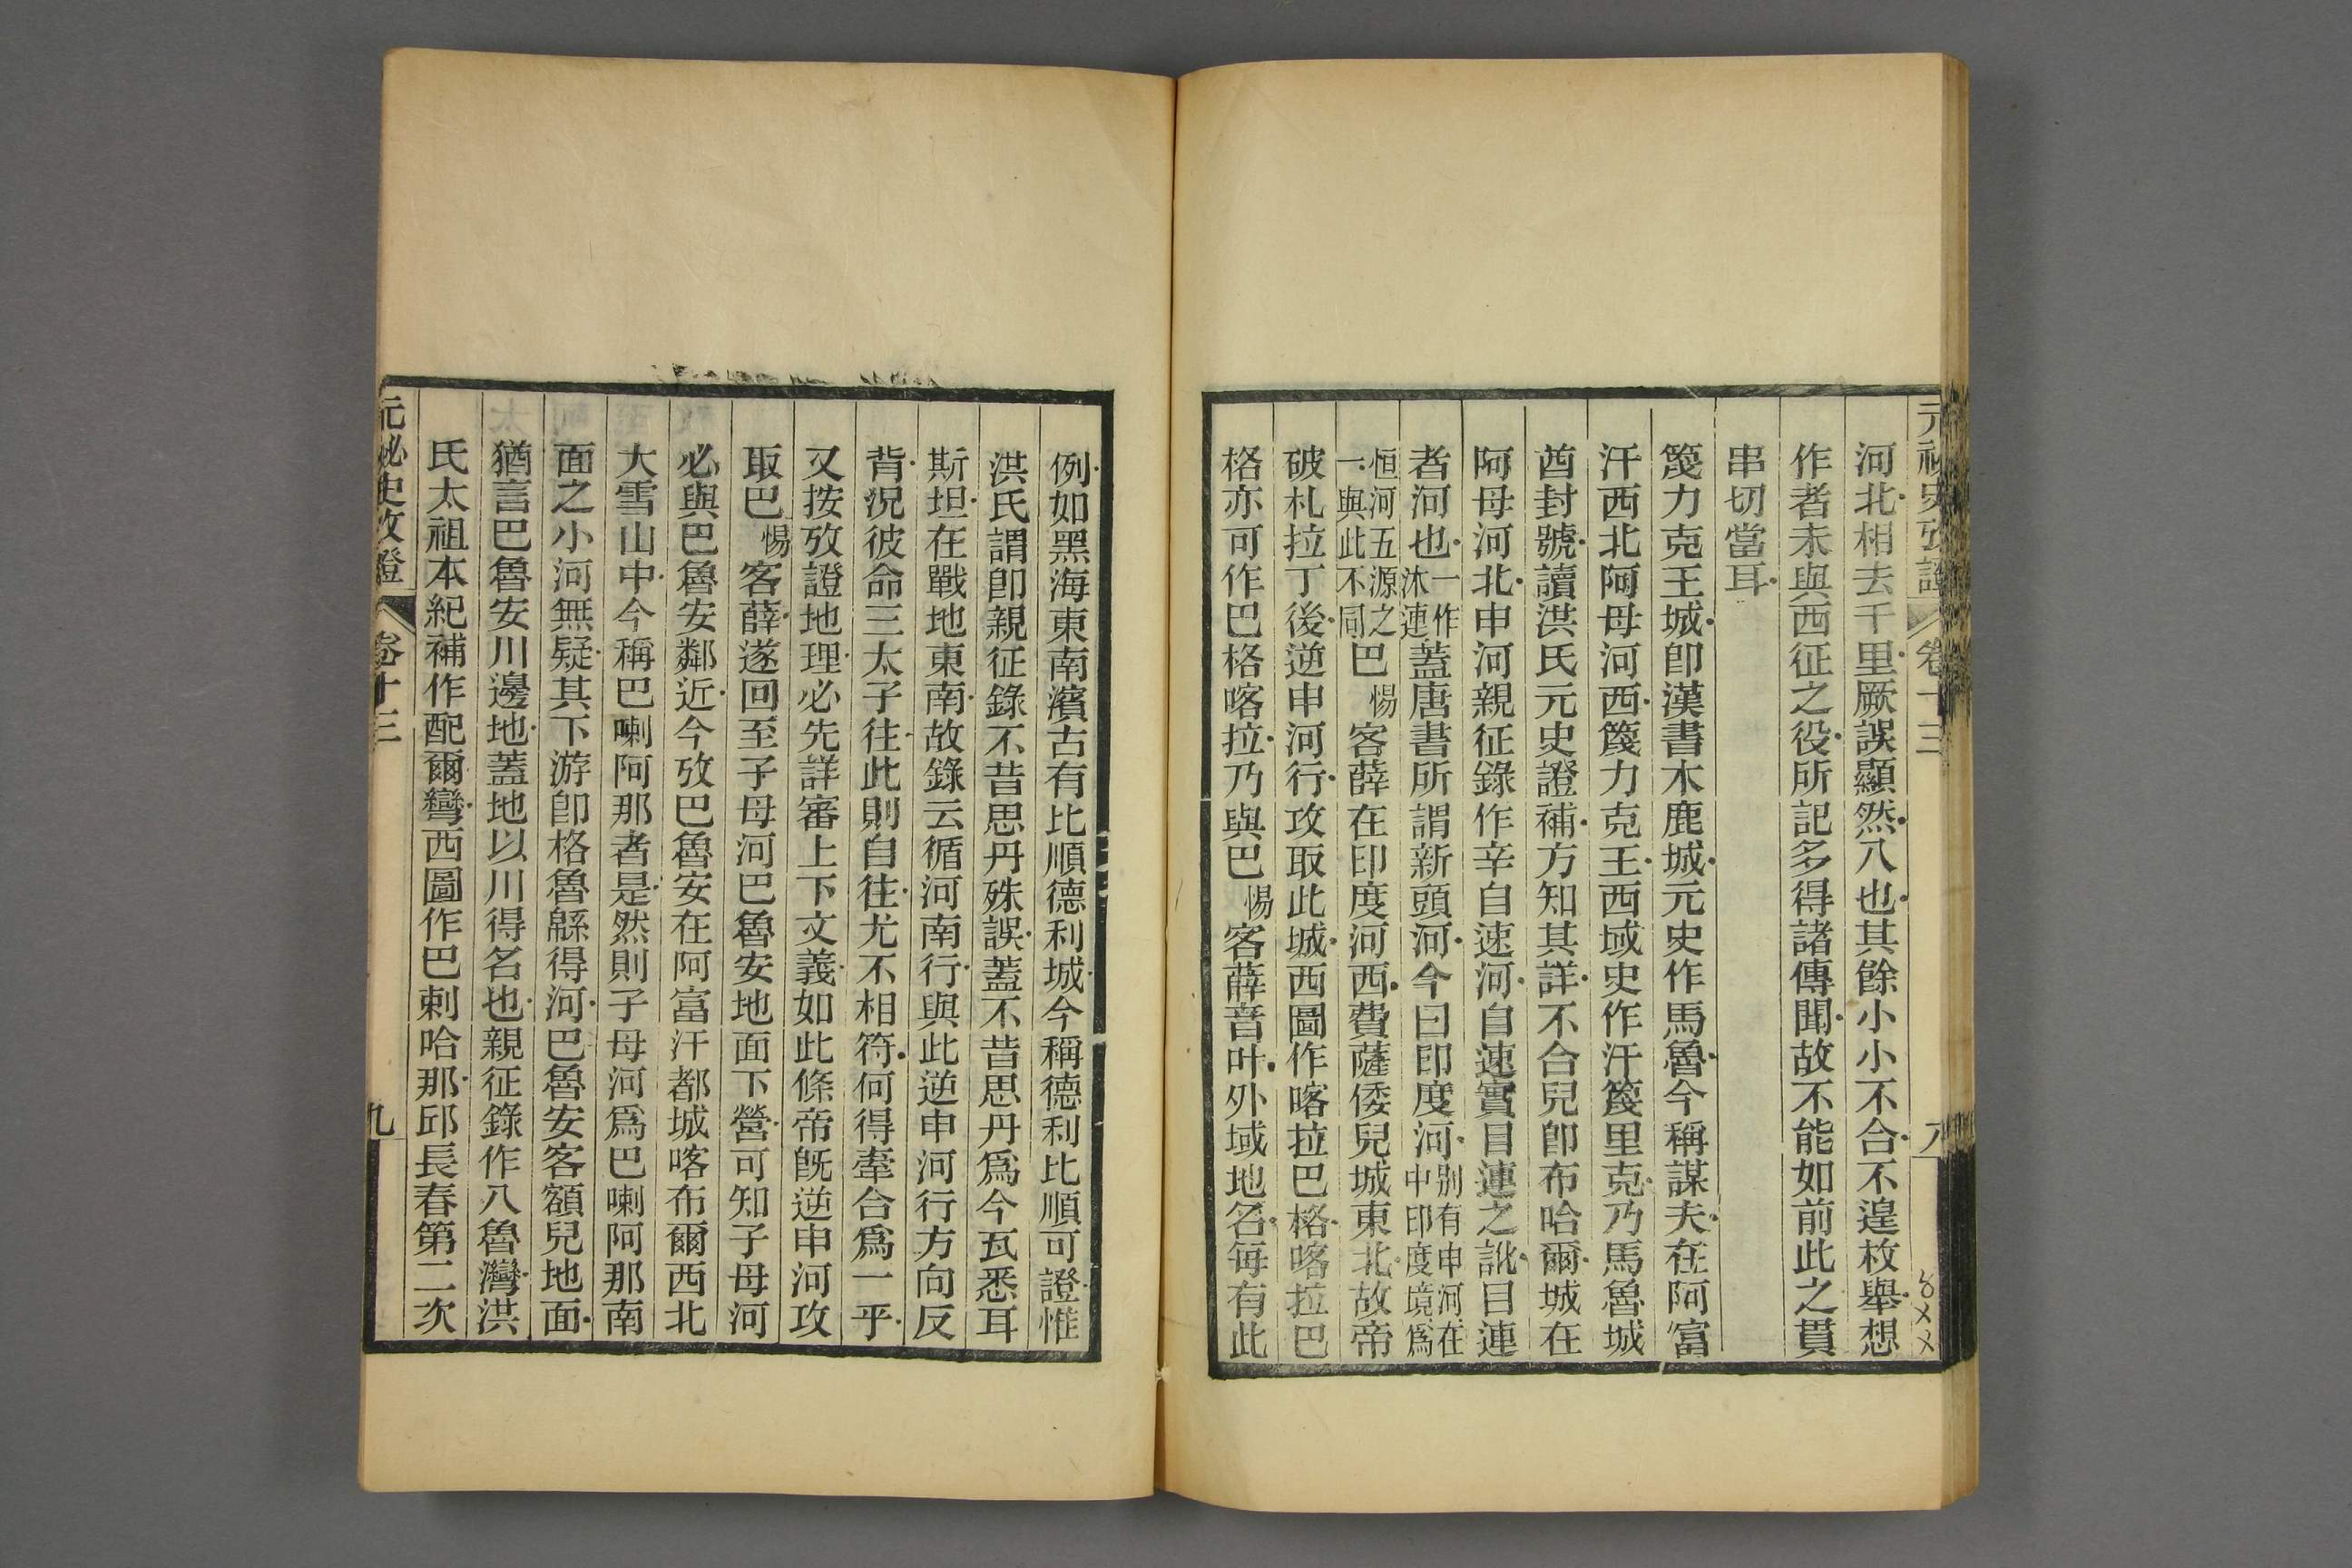 元祕史攷證
卷十三
八
河北相去千里厥誤顯然八也其餘小小不合不遑枚舉想
作者未與西征之役所記多得諸傳聞故不能如前此之貫
串切當耳
篾力克王城卽漢書木鹿城元史作馬魯今稱謀夫在阿富
汗西北阿母河西篾力克王西域史作汗篾里克乃馬魯城
酋封號讀洪氏元史證補方知其詳不合兒卽布哈爾城在
阿母河北申河親征錄作辛自速河自速實目連之訛目連
者河也一作沐連蓋唐書所謂新頭河今曰印度河別有申河在中印度境爲
恒河五源之一與此不同巴惕客薛在印度河西費薩倭兒城東北故帝
破札拉丁後逆申河行攻取此城西圖作喀拉巴格喀拉巴
格亦可作巴格喀拉乃與巴惕客薛音叶外域地名每有此
例如黑海東南濱古有比順德利城今稱德利比順可證惟
洪氏謂卽親征錄不昔思丹殊誤蓋不昔思丹爲今瓦悉耳
斯坦在戰地東南故錄云循河南行與此逆申河行方向反
背況彼命三太子往此則自往尤不相符何得牽合爲一乎
又按攷證地理必先詳審上下文義如此條帝旣逆申河攻
取巴惕客薛遂回至子母河巴魯安地面下營可知子母河
必與巴魯安鄰近今攷巴魯安在阿富汗都城喀布爾西北
大雪山中今稱巴喇阿那者是然則子母河爲巴喇阿那南
面之小河無疑其下游卽格魯緜得河巴魯安客額兒地面
猶言巴魯安川邊地蓋地以川得名也親征錄作八魯灣洪
氏太祖本紀補作配爾彎西圖作巴剌哈那邱長春第二次
元祕史攷證
卷十三
九